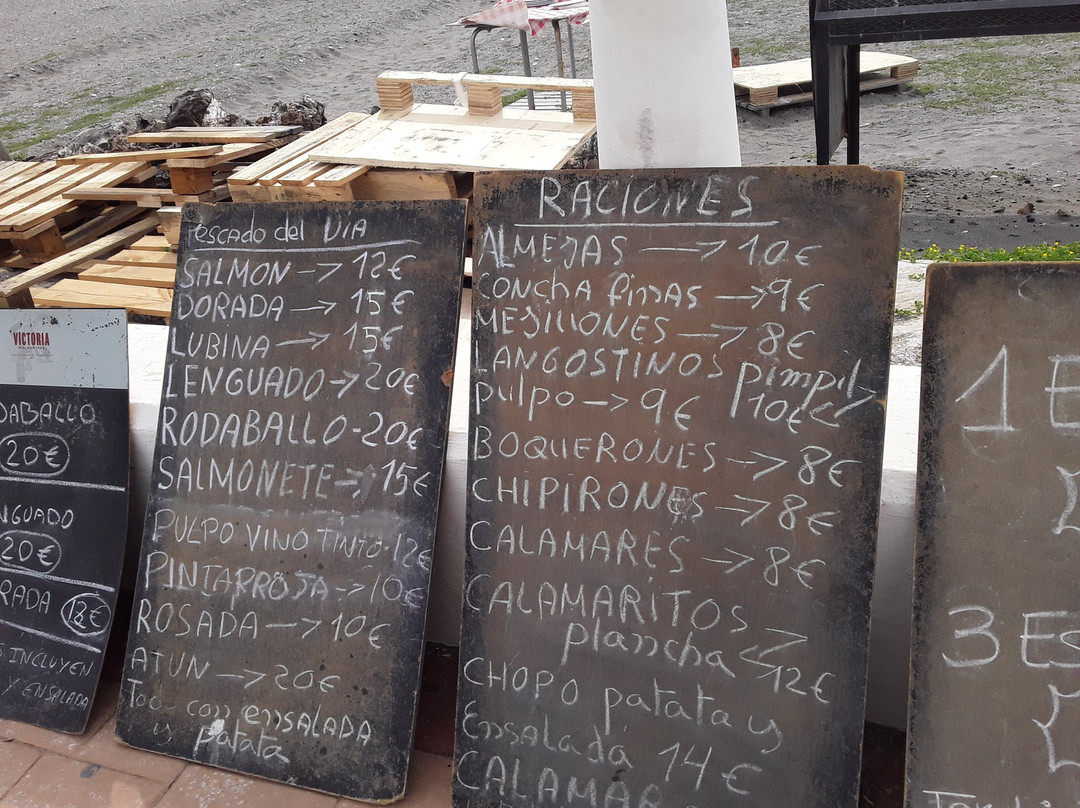 VICTORIA
DABALLO
20€
NGUADO
20€
RADA 18€
INCLUYEN
Y ENSALADA
Pescado del DIA
SALMON -> 12€
DORADA -> 15€
LUBINA -> 15€
LENGUADO -> 20€
RODABALLO - 20€
SALMONETE -> 15€
PULPO VINO TINTO - 12€
PINTARROJA -> 10€
ROSADA -> 10€
ATUN -> 20€
Todo con ensalada
y patata
RACIONES
ALMEJAS -> 10€
Concha finas -> 9€
MEJILLONES -> 8€
LANGOSTINOS pimpil
10€
Pulpo -> 9€
BOQUERONES -> 8€
CHIPIRONES -> 8€
CALAMARES -> 8€
CALAMARITOS
plancha 12€
CHOPO patata y
Ensalada 14€
CALAMAR
1 E
3 ES